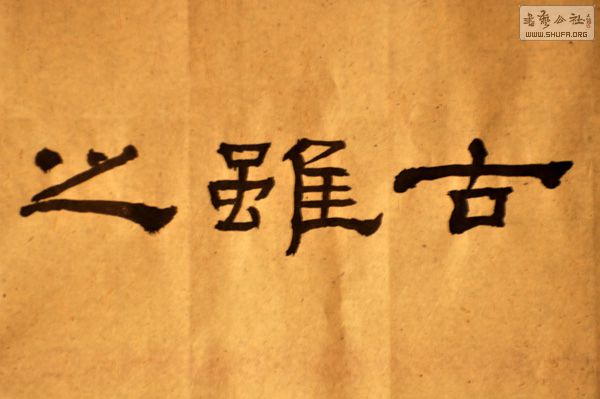 古雖之
书艺公社
WWW.SHUFA.ORG